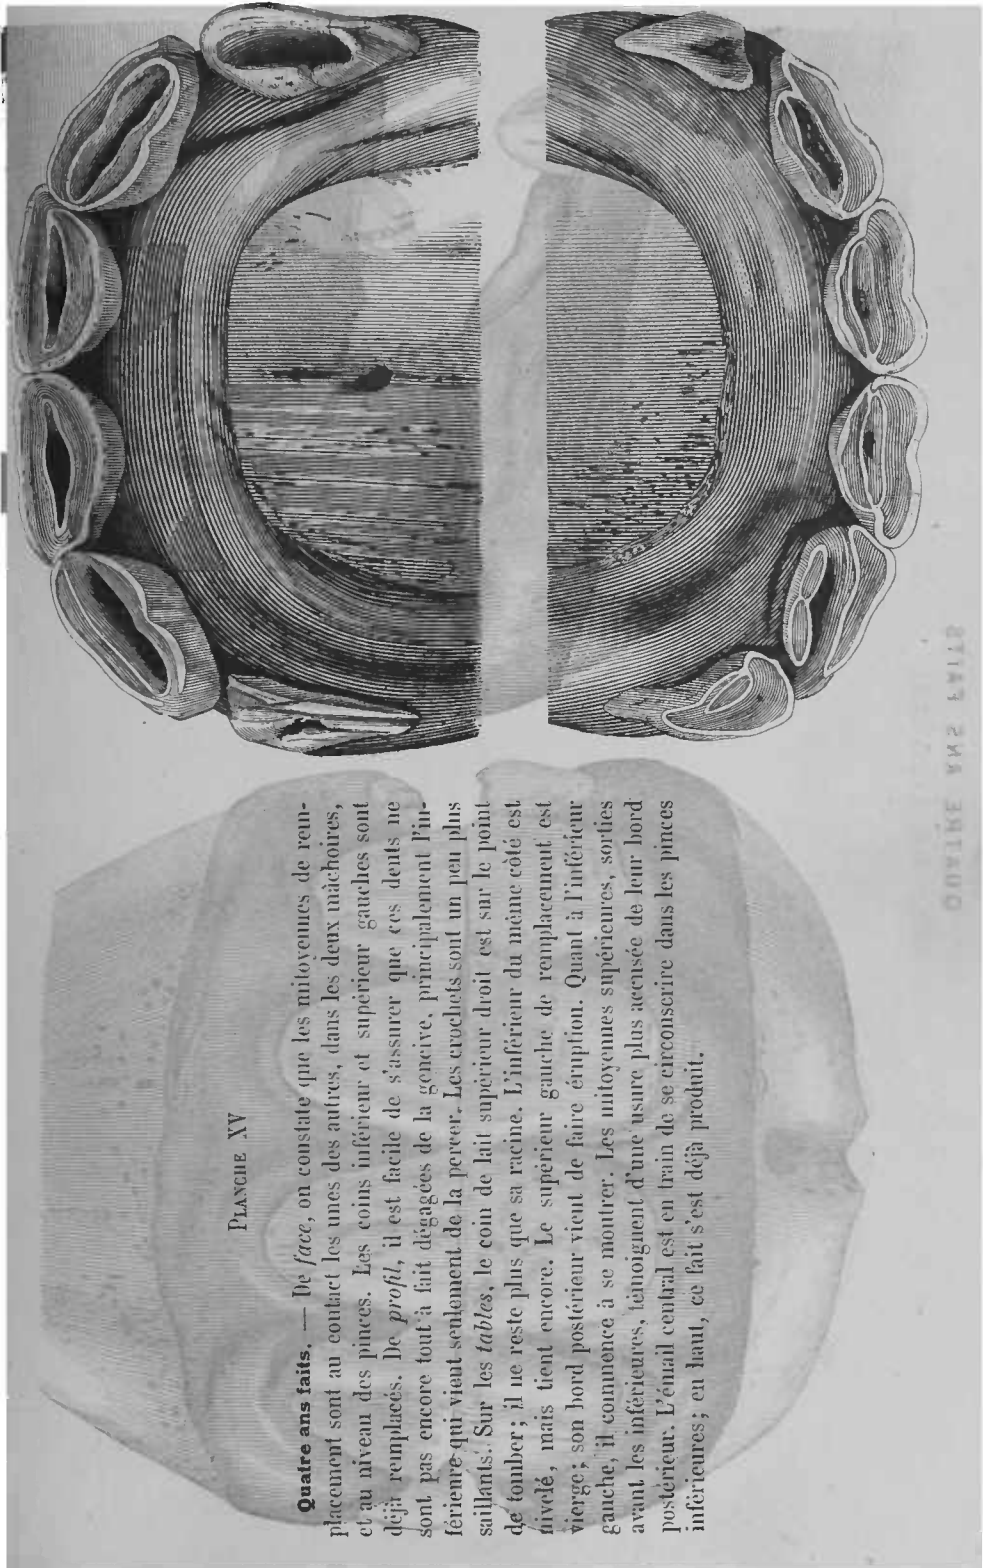 PLANCHE XV
Quatre ans faits. — De face, on constate que les mitoyennes de rem-
placement sont au contact les unes des autres, dans les deux mâchoires,
et au niveau des pinces. Les coins inférieur et supérieur gauches sont
déjà remplacés. De profil, il est facile de s'assurer que ces dents ne
sont pas encore tout à fait dégagées de la gencive, principalement l'in-
férieure qui vient seulement de la percer. Les crochets sont un peu plus
saillants. Sur les tables, le coin de lait supérieur droit est sur le point
de tomber; il ne reste plus que sa racine. L'inférieur du même côté est
nivelé, mais tient encore. Le supérieur gauche de remplacement est
vierge; son bord postérieur vient de faire éruption. Quant à l'inférieur
gauche, il commence à se montrer. Les mitoyennes supérieures, sorties
avant les inférieures, témoignent d'une usure plus accusée de leur bord
postérieur. L'émail central est en train de se circonscrire dans les pinces
inférieures; en haut, ce fait s'est déjà produit.
QUATRE ANS FAITS